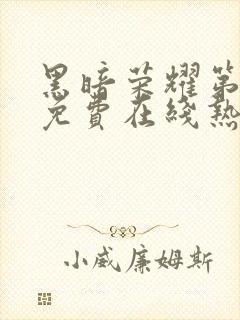 黑暗荣耀第
免费在线热
小威廉姆斯